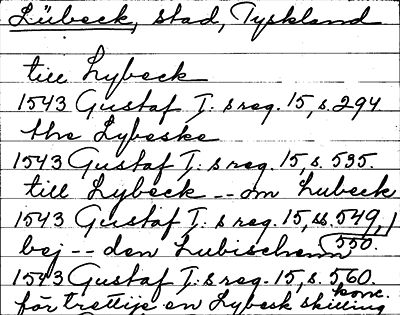 Lübeck, stad, Tyskland
till Lybeck
1543 Gustaf I:s reg. 15, s. 294
the Lybeske
1543 Gustaf I:s reg. 15, s. 535.
till Lybeck -- om Lubeck
1543 Gustaf I:s reg. 15, ss. 549,
550.
bej -- den Lubischenn
1543 Gustaf I:s reg. 15, s. 560.
konc.
för trettije en Lybesk skilling